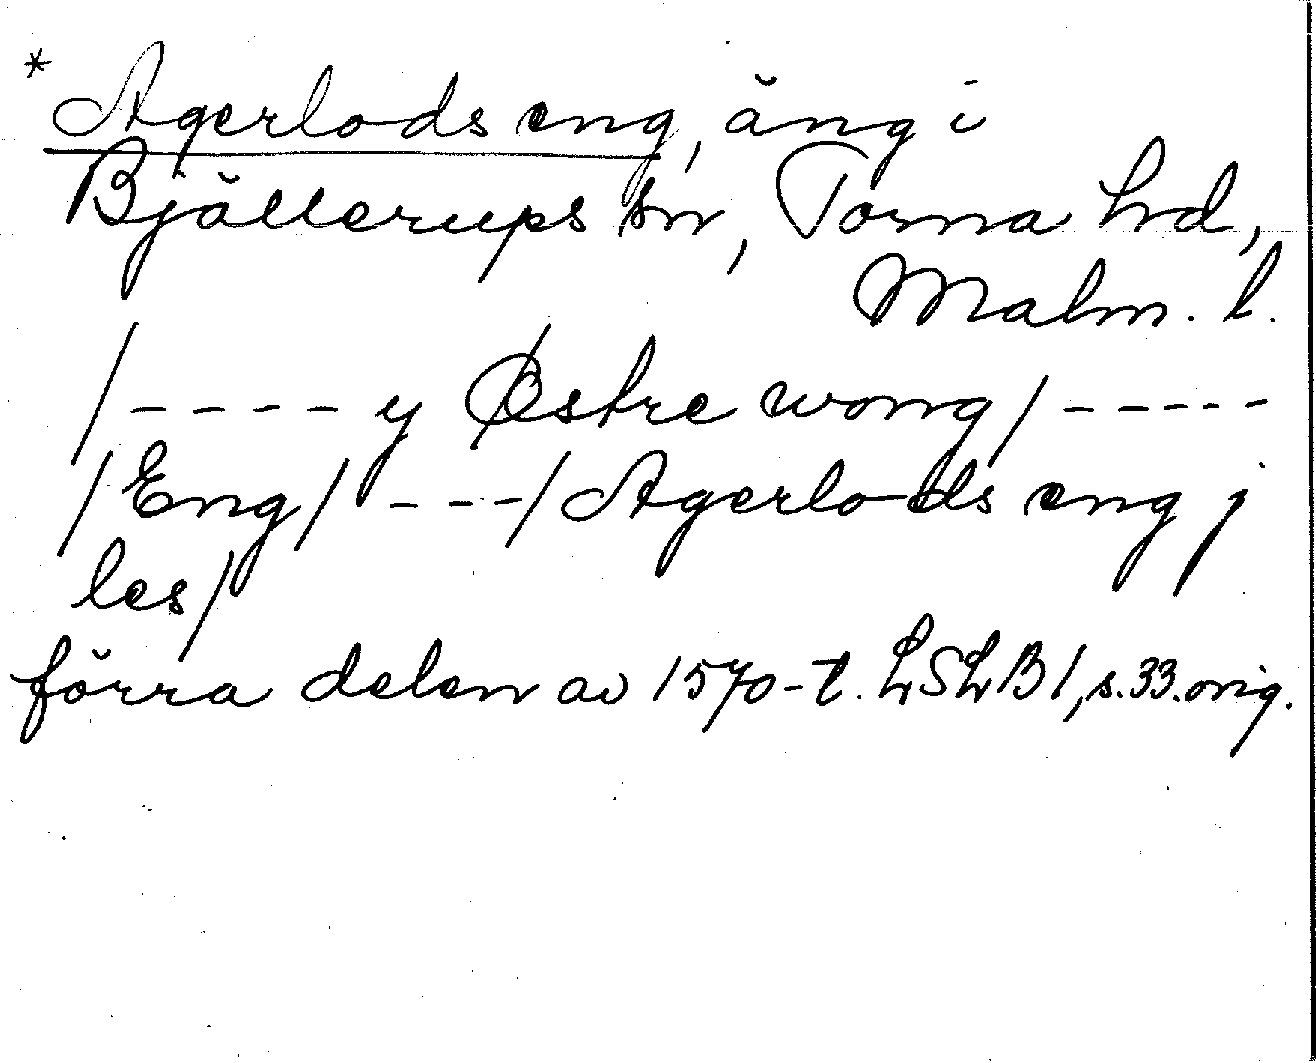 * Agerlods eng, äng i
Bjällerups sn, Torna hd,
Malm. l.
/---- y Østre wong/-----
/Eng/ ---/Agerlods eng j
les/
förra delen av 1570-t. LSLB 1, s. 33. orig.